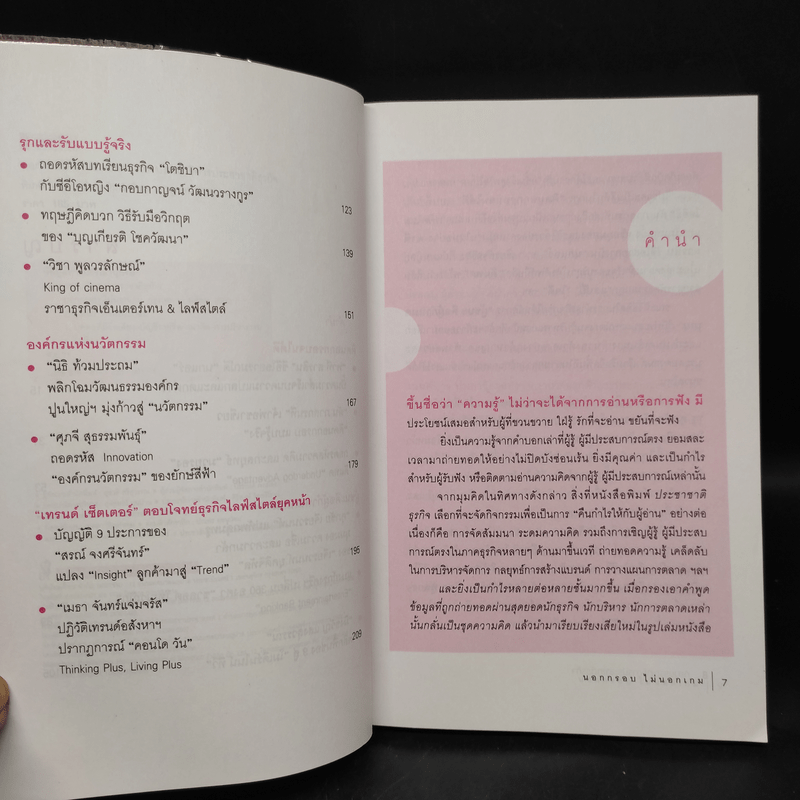 รุกและรับแบบรู้จริง
● ถอดรหัสบทเรียนธุรกิจ “โตชิบา”
กับซีอีโอหญิง “กอบกาญจน์ วัฒนวรางกูร”
123
● ทฤษฎีคิดบวก วิธีรับมือวิกฤต
ของ “บุญเกียรติ โชควัฒนา”
139
● “วิชา พูลวรลักษณ์”
King of cinema
ราชาธุรกิจเอ็นเตอร์เทน & ไลฟ์สไตล์
151
องค์กรแห่งนวัตกรรม
● “นิธิ ท้วมประถม”
พลิกโฉมวัฒนธรรมองค์กร
ปูนใหญ่ฯ มุ่งก้าวสู่ “นวัตกรรม”
167
● “ศุภจี สุธรรมพันธุ์”
ถอดรหัส Innovation
“องค์กรนวัตกรรม” ของยักษ์สีฟ้า
179
“เทรนด์ เซ็ตเตอร์” ตอบโจทย์ธุรกิจไลฟ์สไตล์ยุคหน้า
● บัญญัติ 9 ประการของ
“สรณ์ จงศรีจันทร์”
แปลง “Insight” ลูกค้ามาสู่ “Trend”
195
● “เมธา จันทร์แจ่มจรัส”
ปฏิวัติเทรนด์อสังหาฯ
ปรากฏการณ์ “คอนโด วัน”
Thinking Plus, Living Plus
209
คำนำ
ขึ้นชื่อว่า “ความรู้” ไม่ว่าจะได้จากการอ่านหรือการฟัง มี
ประโยชน์เสมอสำหรับผู้ที่ขวนขวาย ใฝ่รู้ รักที่จะอ่าน ขยันที่จะฟัง
ยิ่งเป็นความรู้จากคำบอกเล่าที่ผู้รู้ ผู้มีประสบการณ์ตรง ยอมสละ
เวลามาถ่ายทอดให้อย่างไม่ปิดบังซ่อนเร้น ยิ่งมีคุณค่า และเป็นกำไร
สำหรับผู้รับฟัง หรือติดตามอ่านความคิดจากผู้รู้ ผู้มีประสบการณ์เหล่านั้น
จากมุมคิดในทิศทางดังกล่าว สิ่งที่หนังสือพิมพ์ ประชาชาติ
ธุรกิจ เลือกที่จะจัดกิจกรรมเพื่อเป็นการ “คืนกำไรให้กับผู้อ่าน” อย่างต่อ
เนื่องก็คือ การจัดสัมมนา ระดมความคิด รวมถึงการเชิญผู้รู้ ผู้มีประสบ
การณ์ตรงในภาคธุรกิจหลายๆ ด้านมาขึ้นเวที ถ่ายทอดความรู้ เคล็ดลับ
ในการบริหารจัดการ กลยุทธ์การสร้างแบรนด์ การวางแผนการตลาด ฯลฯ
และยิ่งเป็นกำไรหลายต่อหลายชั้นมากขึ้น เมื่อกรองเอาคำพูด
ข้อมูลที่ถูกถ่ายทอดผ่านสุดยอดนักธุรกิจ นักบริหาร นักการตลาดเหล่า
นั้นกลั่นเป็นชุดความคิด แล้วนำมาเรียบเรียงเสียใหม่ในรูปเล่มหนังสือ
นอกกรอบ ไม่นอกเกม | 7